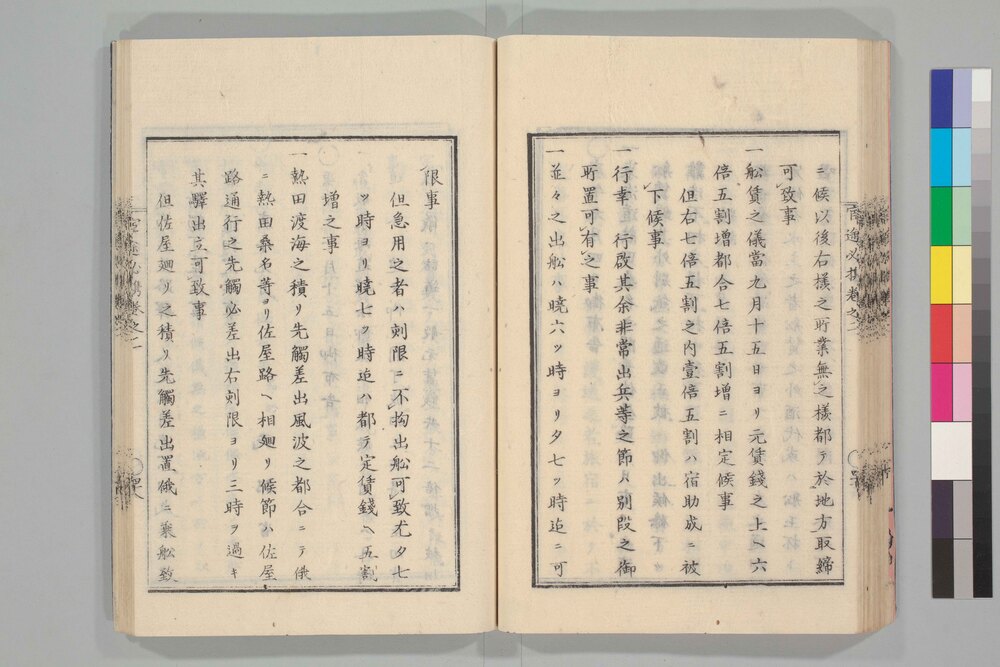 ニ候以後右樣之所業無之樣都テ於地方取締
可致事
一舩賃之儀當九月十五日ヨリ元賃錢之上ヘ六
倍五割增都合七倍五割增ニ相定候事
但右七倍五割之内壹倍五割ハ宿助成ニ被
下候事
一行幸　行啟其余非常出兵等之節ハ別段之御
所置可有之事
一並々之出舩ハ曉六ツ時ヨリ夕七ツ時迄ニ可
限事
但急用之者ハ刻限ニ不拘出舩可致尤夕七
ツ時ヨリ曉七ツ時迄ハ都テ定賃錢ヘ五割
增之事
一熱田渡海之積リ先觸差出風波之都合ニテ俄
ニ熱田桑名等ヨリ佐屋路ヘ相廻リ候節ハ佐屋
路通行之先觸必差出右刻限ヨリ三時ヲ過キ
其驛出立可致事
但佐屋廻リ之積リ先觸差出置俄ニ乘舩致